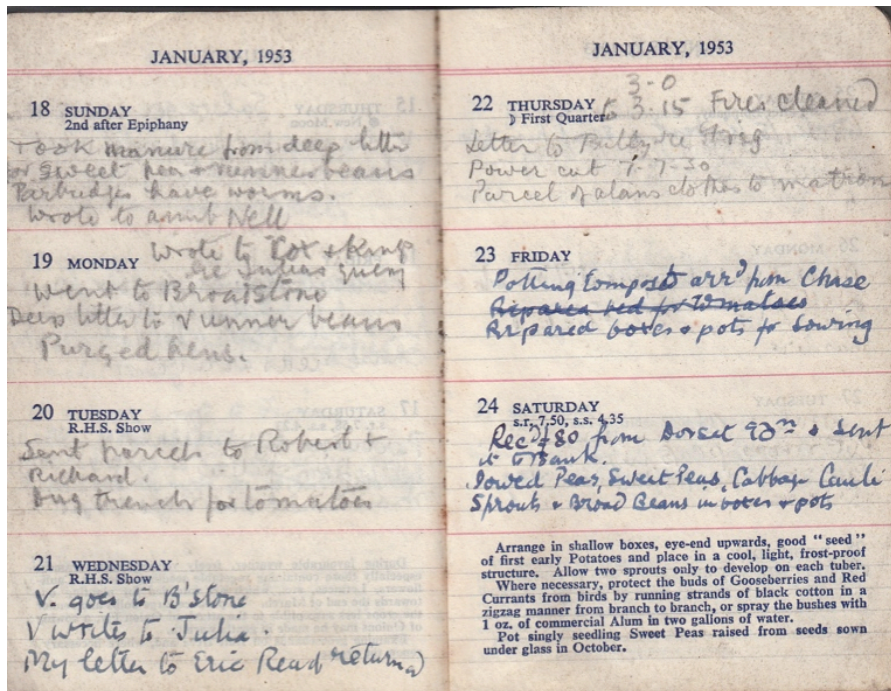 JANUARY, 1953
18 SUNDAY
2nd after Epiphany
Took manure from deep litter
for sweet peas & runner beans
Partridges have worms.
Wrote to aunt Nell
19 MONDAY Wrote to Cox & Kings
re Julias query
Went to Broadstone
Deep litter to runner beans
Purged hens.
20 TUESDAY
R.H.S. Show
Sent parcels to Robert &
Richard.
Dug trench for tomatoes
21 WEDNESDAY
R.H.S. Show
V. goes to B'stone
V writes to Julia.
My letter to Eric Read returned
JANUARY, 1953
3-0
22 THURSDAY to 3.15 Fires cleaned
☽ First Quarter
Letter to Billy re
Power cut 7-7.30
Parcel of alans clothes to matron
23 FRIDAY
Potting Compost arrd from Chase
Repared bed for Tomatoes
Repared boxes & pots for Sowing
24 SATURDAY
s.r. 7.50, s.s. 4.35
Recd £80 from Dorset & sent
it to Bank.
Sowed Peas, Sweet Peas, Cabbage Cauli
Sprouts & Broad Beans in boxes & pots
Arrange in shallow boxes, eye-end upwards, good "seed"
of first early Potatoes and place in a cool, light, frost-proof
structure. Allow two sprouts only to develop on each tuber.
Where necessary, protect the buds of Gooseberries and Red
Currants from birds by running strands of black cotton in a
zigzag manner from branch to branch, or spray the bushes with
1 oz. of commercial Alum in two gallons of water.
Pot singly seedling Sweet Peas raised from seeds sown
under glass in October.